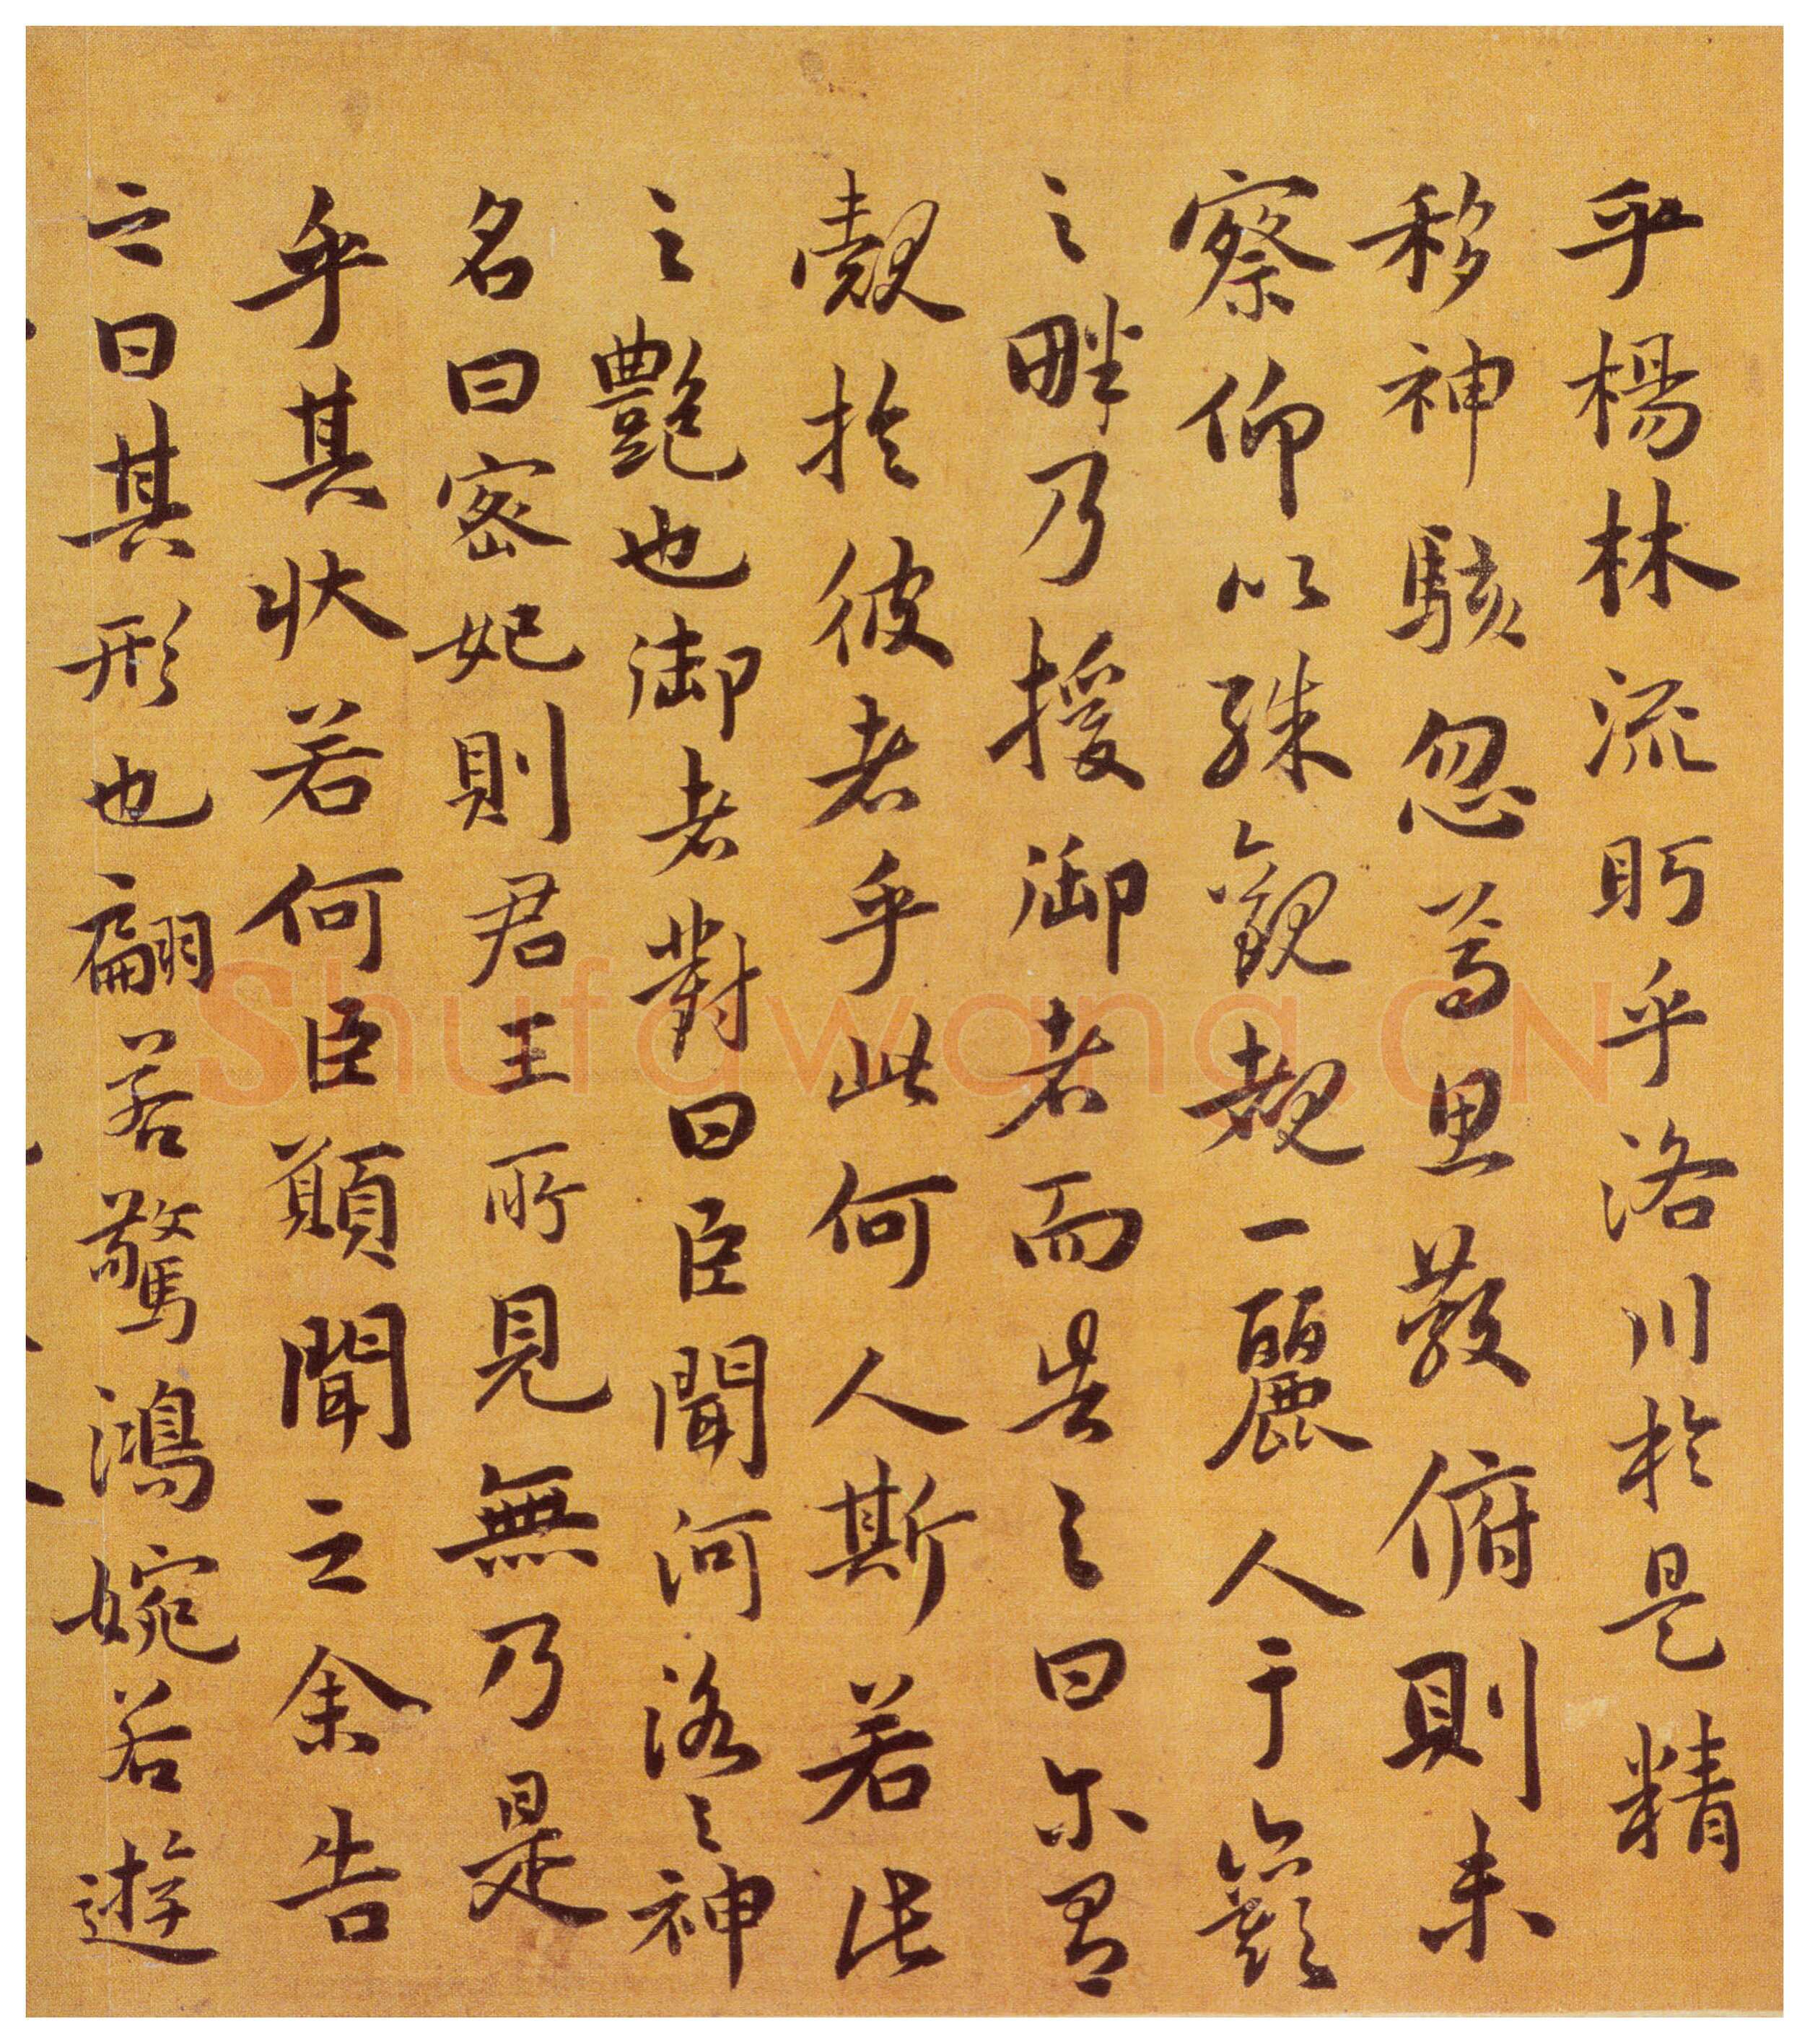 乎楊林流眄乎洛川於是精
移神駭忽焉思散俯則未
察仰以殊觀覩一麗人于巖
之畔乃援御者而告之曰尔有
覿於彼者乎此何人斯若此
之艷也御者對曰臣聞河洛之神
名曰密妃則君王所見無乃是
乎其狀若何臣願聞之余告
之曰其形也翩若驚鴻婉若遊
Shufawang.CN